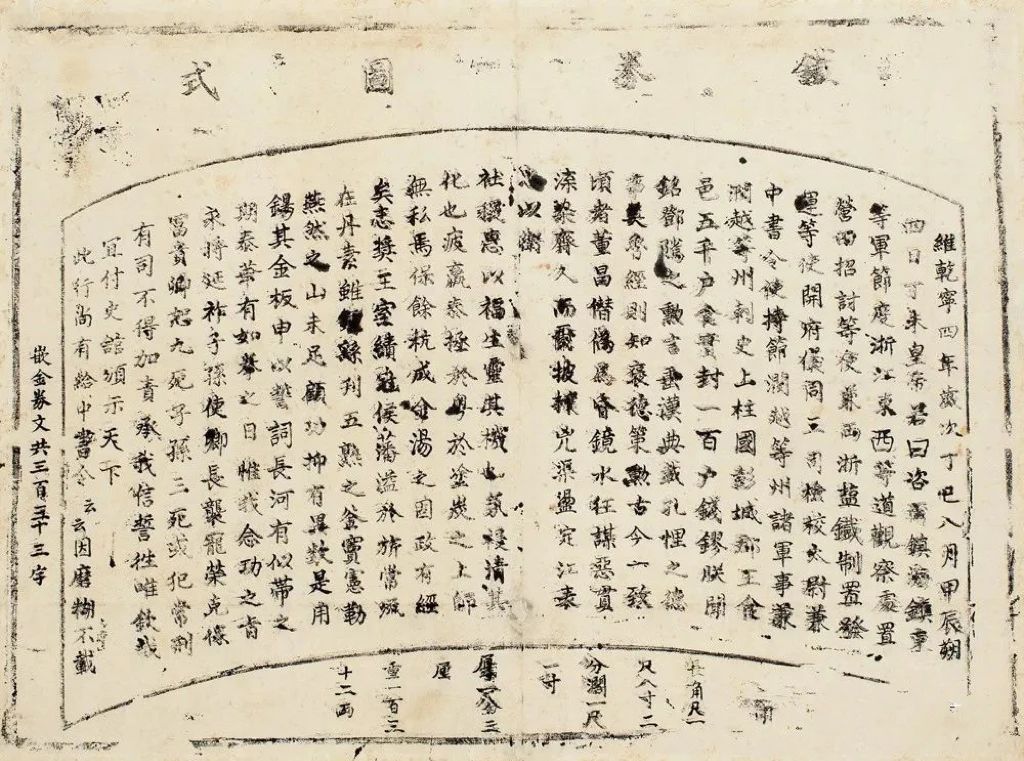 鐵券圖式
維乾寧四年歲次丁巳八月甲辰朔
四日丁未皇帝若曰咨爾鎮海鎮東
等軍節度浙江東西等道觀察處置
營田招討等使兼兩浙鹽鐵制置發
運等使開府儀同三司檢校太尉兼
中書令使持節潤越等州諸軍事兼
潤越等州刺史上柱國彭城郡王食
邑五千户食實封一百户錢鏐朕聞
銘鄧隲之勲言垂漢典載孔悝之德
事美魯經則知褒德策勲古今一致
頃者董昌僭偽爲昏鏡水狂謀惡貫
渫染齊人而爾披攘兇渠盪定江表
忠以衛
社稷惠以福生靈其機也氛祲清其
化也疲羸泰拯於粵於塗炭之上師
無私焉保餘杭成金湯之固政有經
矣志奬王室績冠侯藩溢於旂常流
在丹素雖鍾繇刊五熟之釜竇憲勒
燕然之山未足顧功抑有異數是用
錫其金板申以誓詞長河有似帶之
期泰華有如拳之日惟我念功之旨
永將延祚子孫使卿長襲寵榮克保
富貴卿恕九死子孫三死或犯常刑
有司不得加責承我信誓往惟欽哉
宜付史館頒示天下
此行尚有給中書令云云因磨糊不載
嵌金券文共三百三十三字
角尺一
尺八寸二
分濶一尺
一寸
厚一分三
厘
重一百三
十二兩